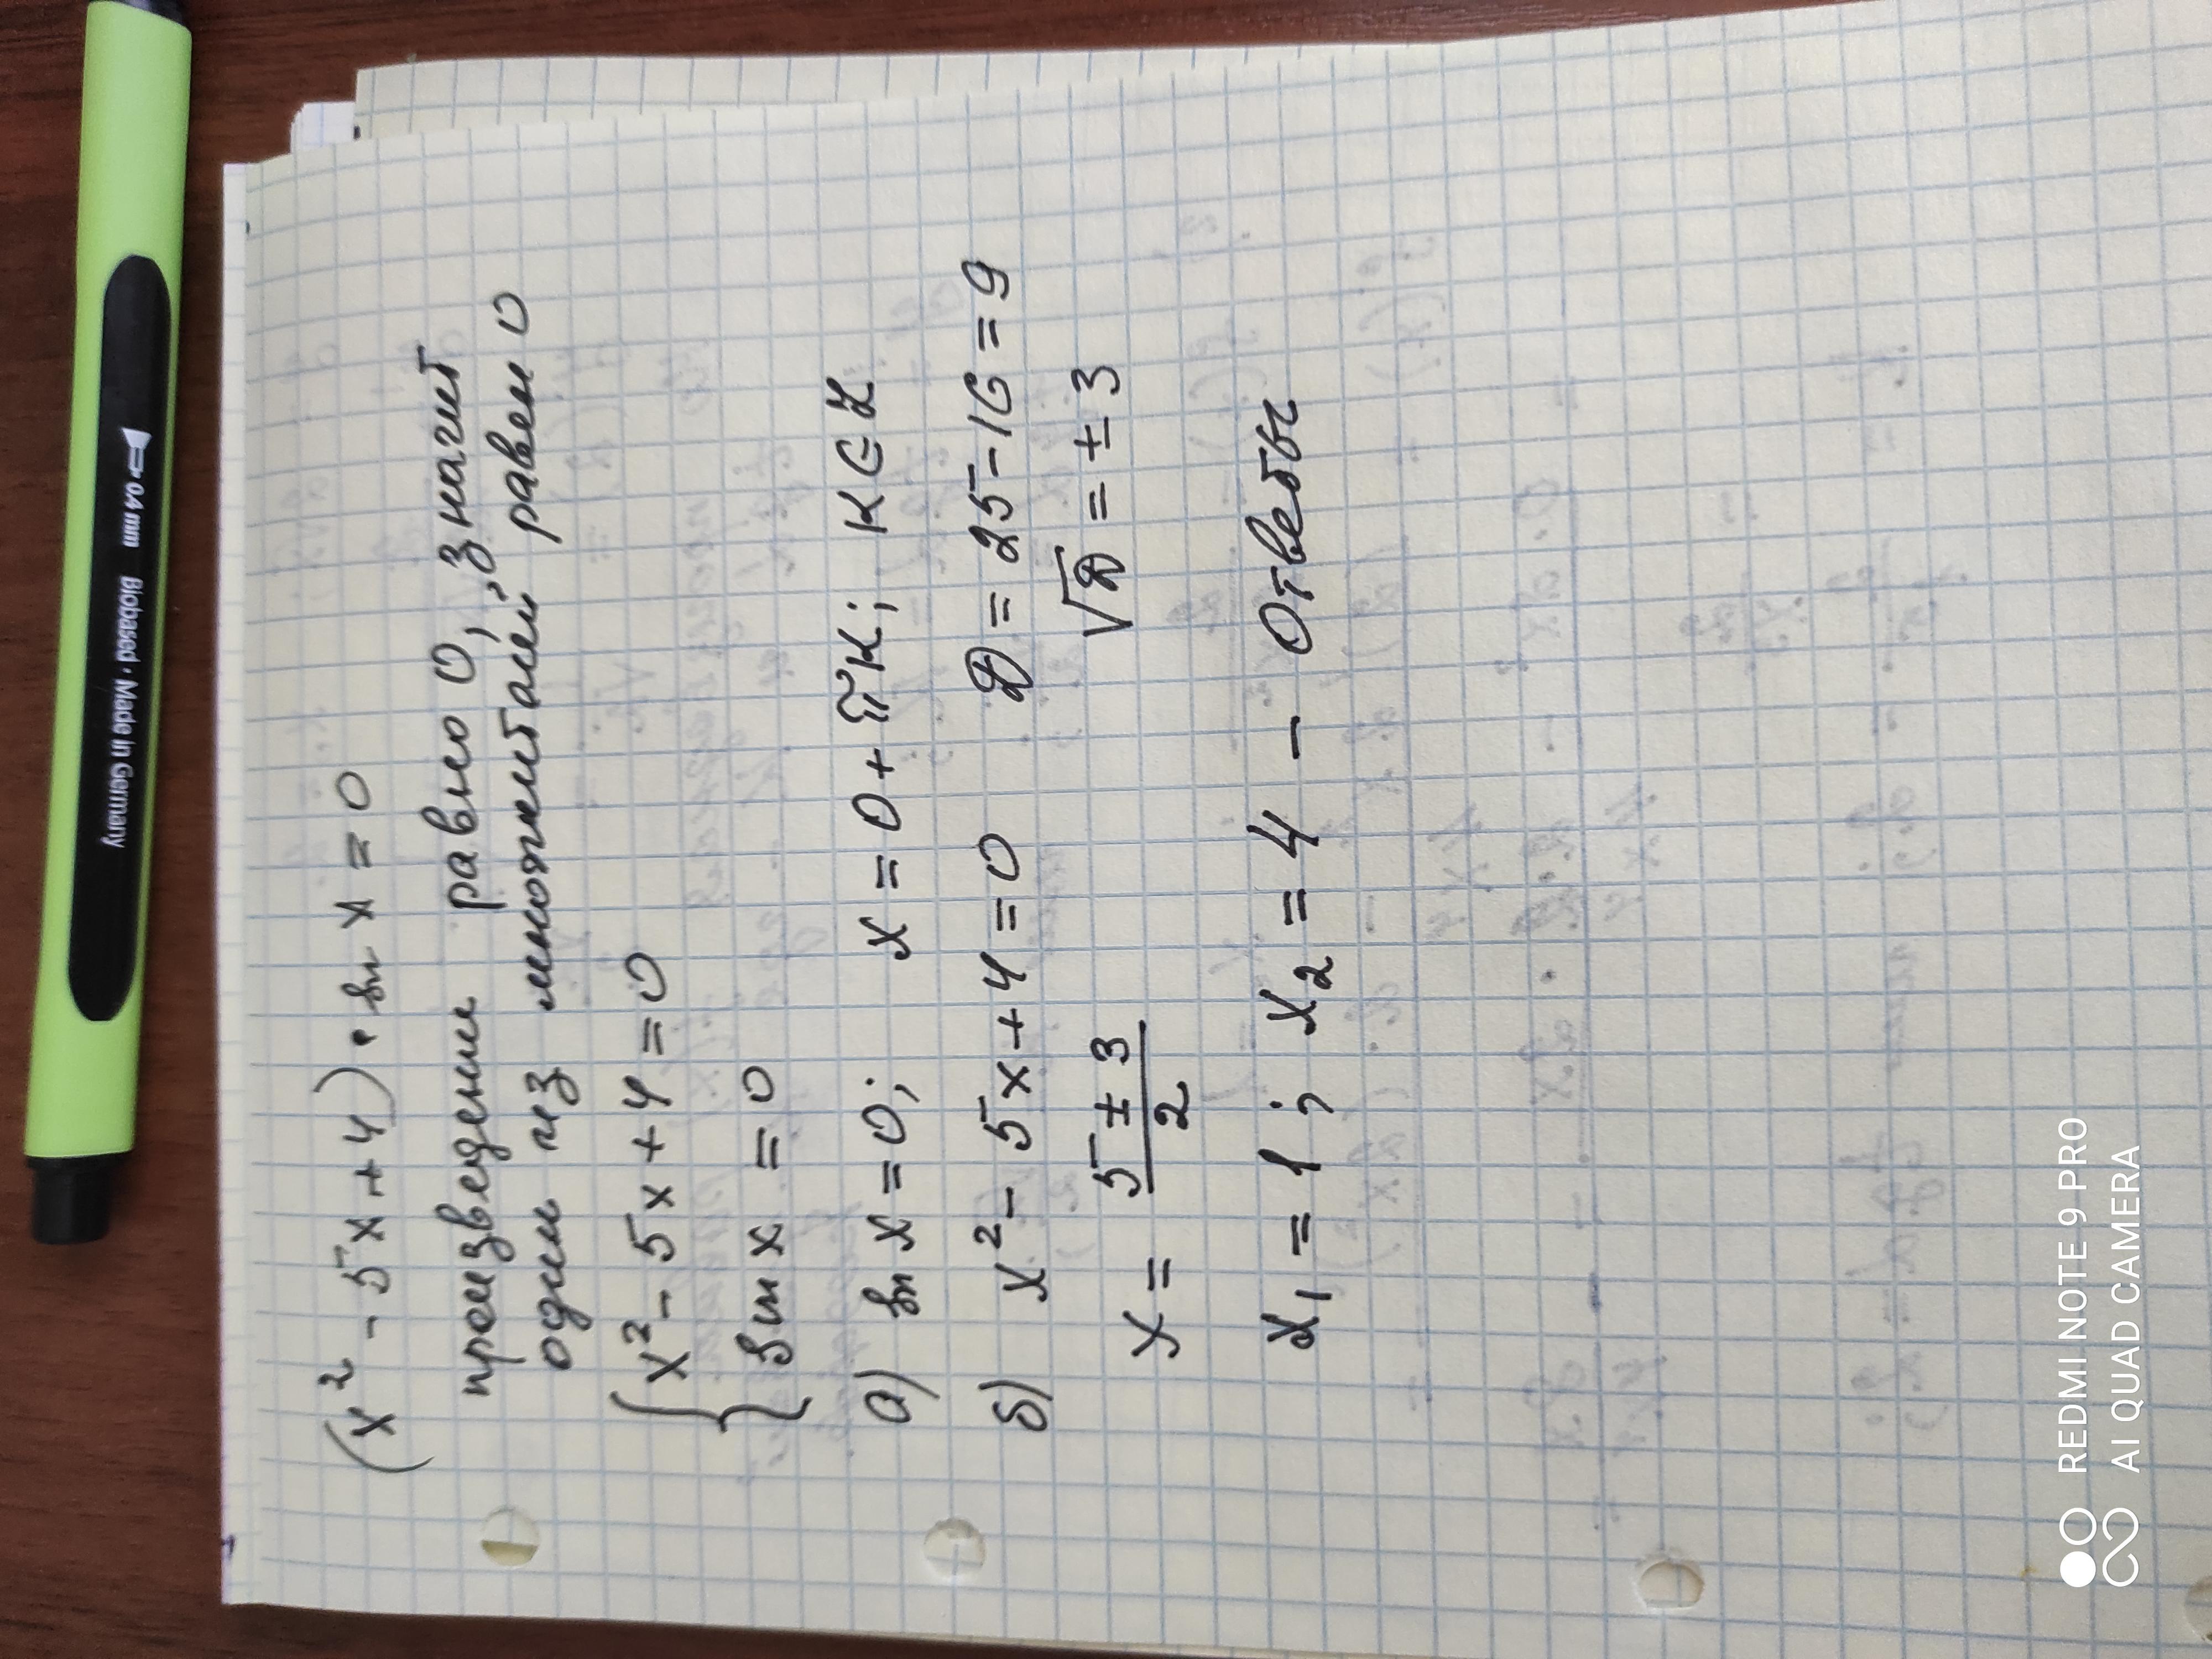 (x² - 5x + 4) · sin x = 0
произведение равно 0, значит
один из множителей равен 0
{ x² - 5x + 4 = 0
{ sin x = 0
а) sin x = 0; x = 0 + πк; к ∈ Z
б) x² - 5x + 4 = 0 D = 25 - 16 = 9
x = (5 ± 3)/2 √D = ± 3
x₁ = 1; x₂ = 4 - Ответы
0,4 mm Biobased · Made in Germany
REDMI NOTE 9 PRO
AI QUAD CAMERA